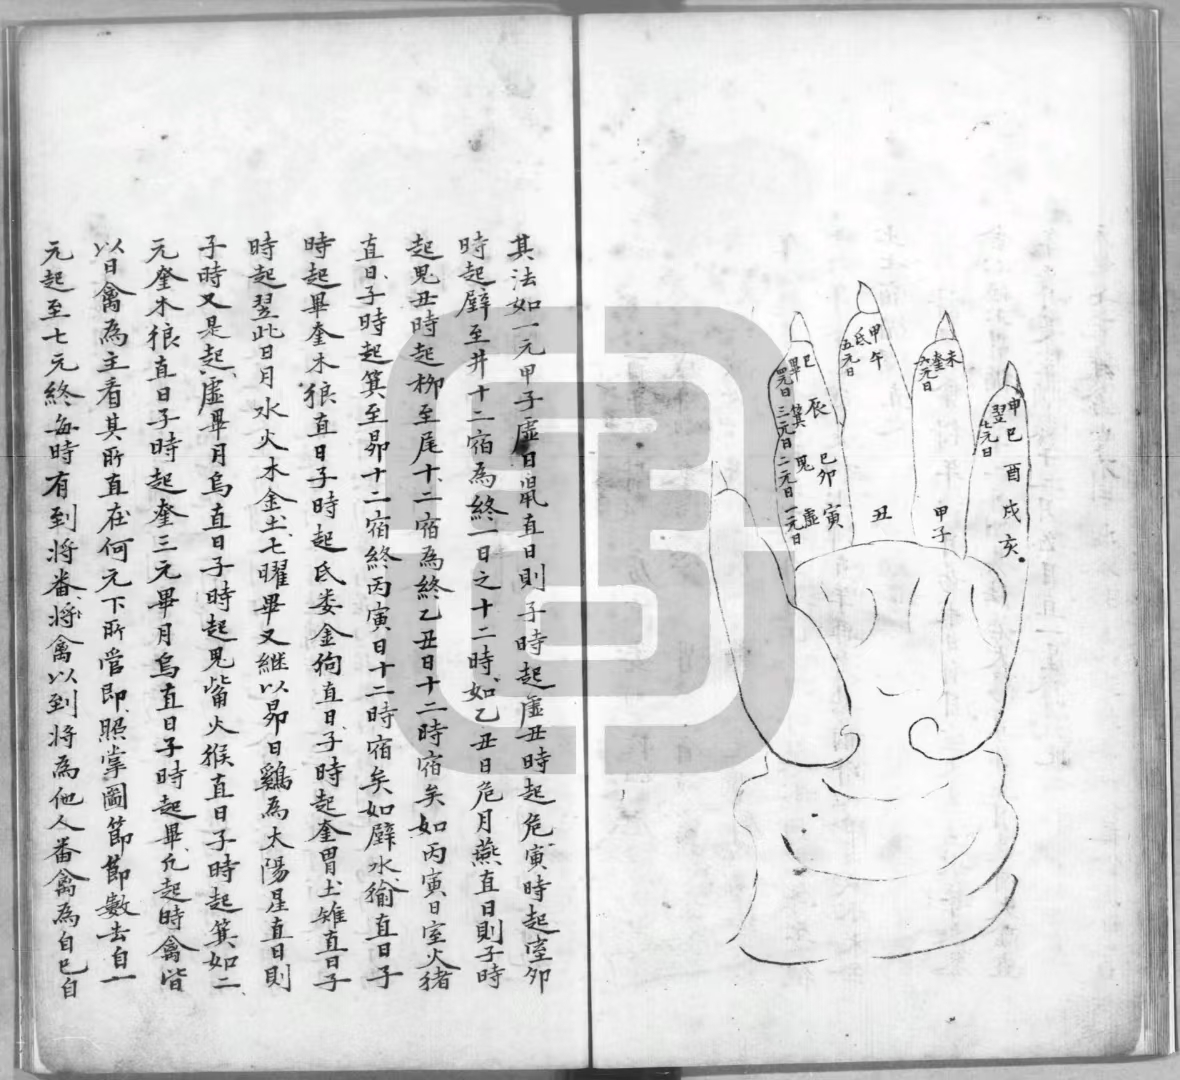 申
翌
七元日
巳
酉
戌
亥
未
奎
六元日
甲子
甲午
氐
五元日
丑
巳
畢
四元日
辰
箕
三元日
巳卯
鬼
二元日
寅
虛
一元日
其法如一元甲子虛日鼠直日則子時起虛丑時起危寅時起室卯
時起壁至井十二宿為終一日之十二時如乙丑日危月燕直日則子時
起鬼丑時起柳至尾十二宿為終乙丑日十二時宿矣如丙寅日室火猪
直日子時起箕至昴十二宿終丙寅日十二時宿矣如壁水㺄直日子
時起畢奎木狼直日子時起氐娄金狗直日子時起奎胃土雉直日子
時起翌此日月水火木金土七曜畢又継以昴日鷄為太陽星直日則
子時又是起虛畢月烏直日子時起鬼觜火猴直日子時起箕如二
元奎木狼直日子時起奎三元畢月烏直日子時起畢凢起時禽皆
以日禽為主看其所直在何元下所管即照掌圖節節數去自一
元起至七元終每時有到将畨将禽以到将為他人畨禽為自己自